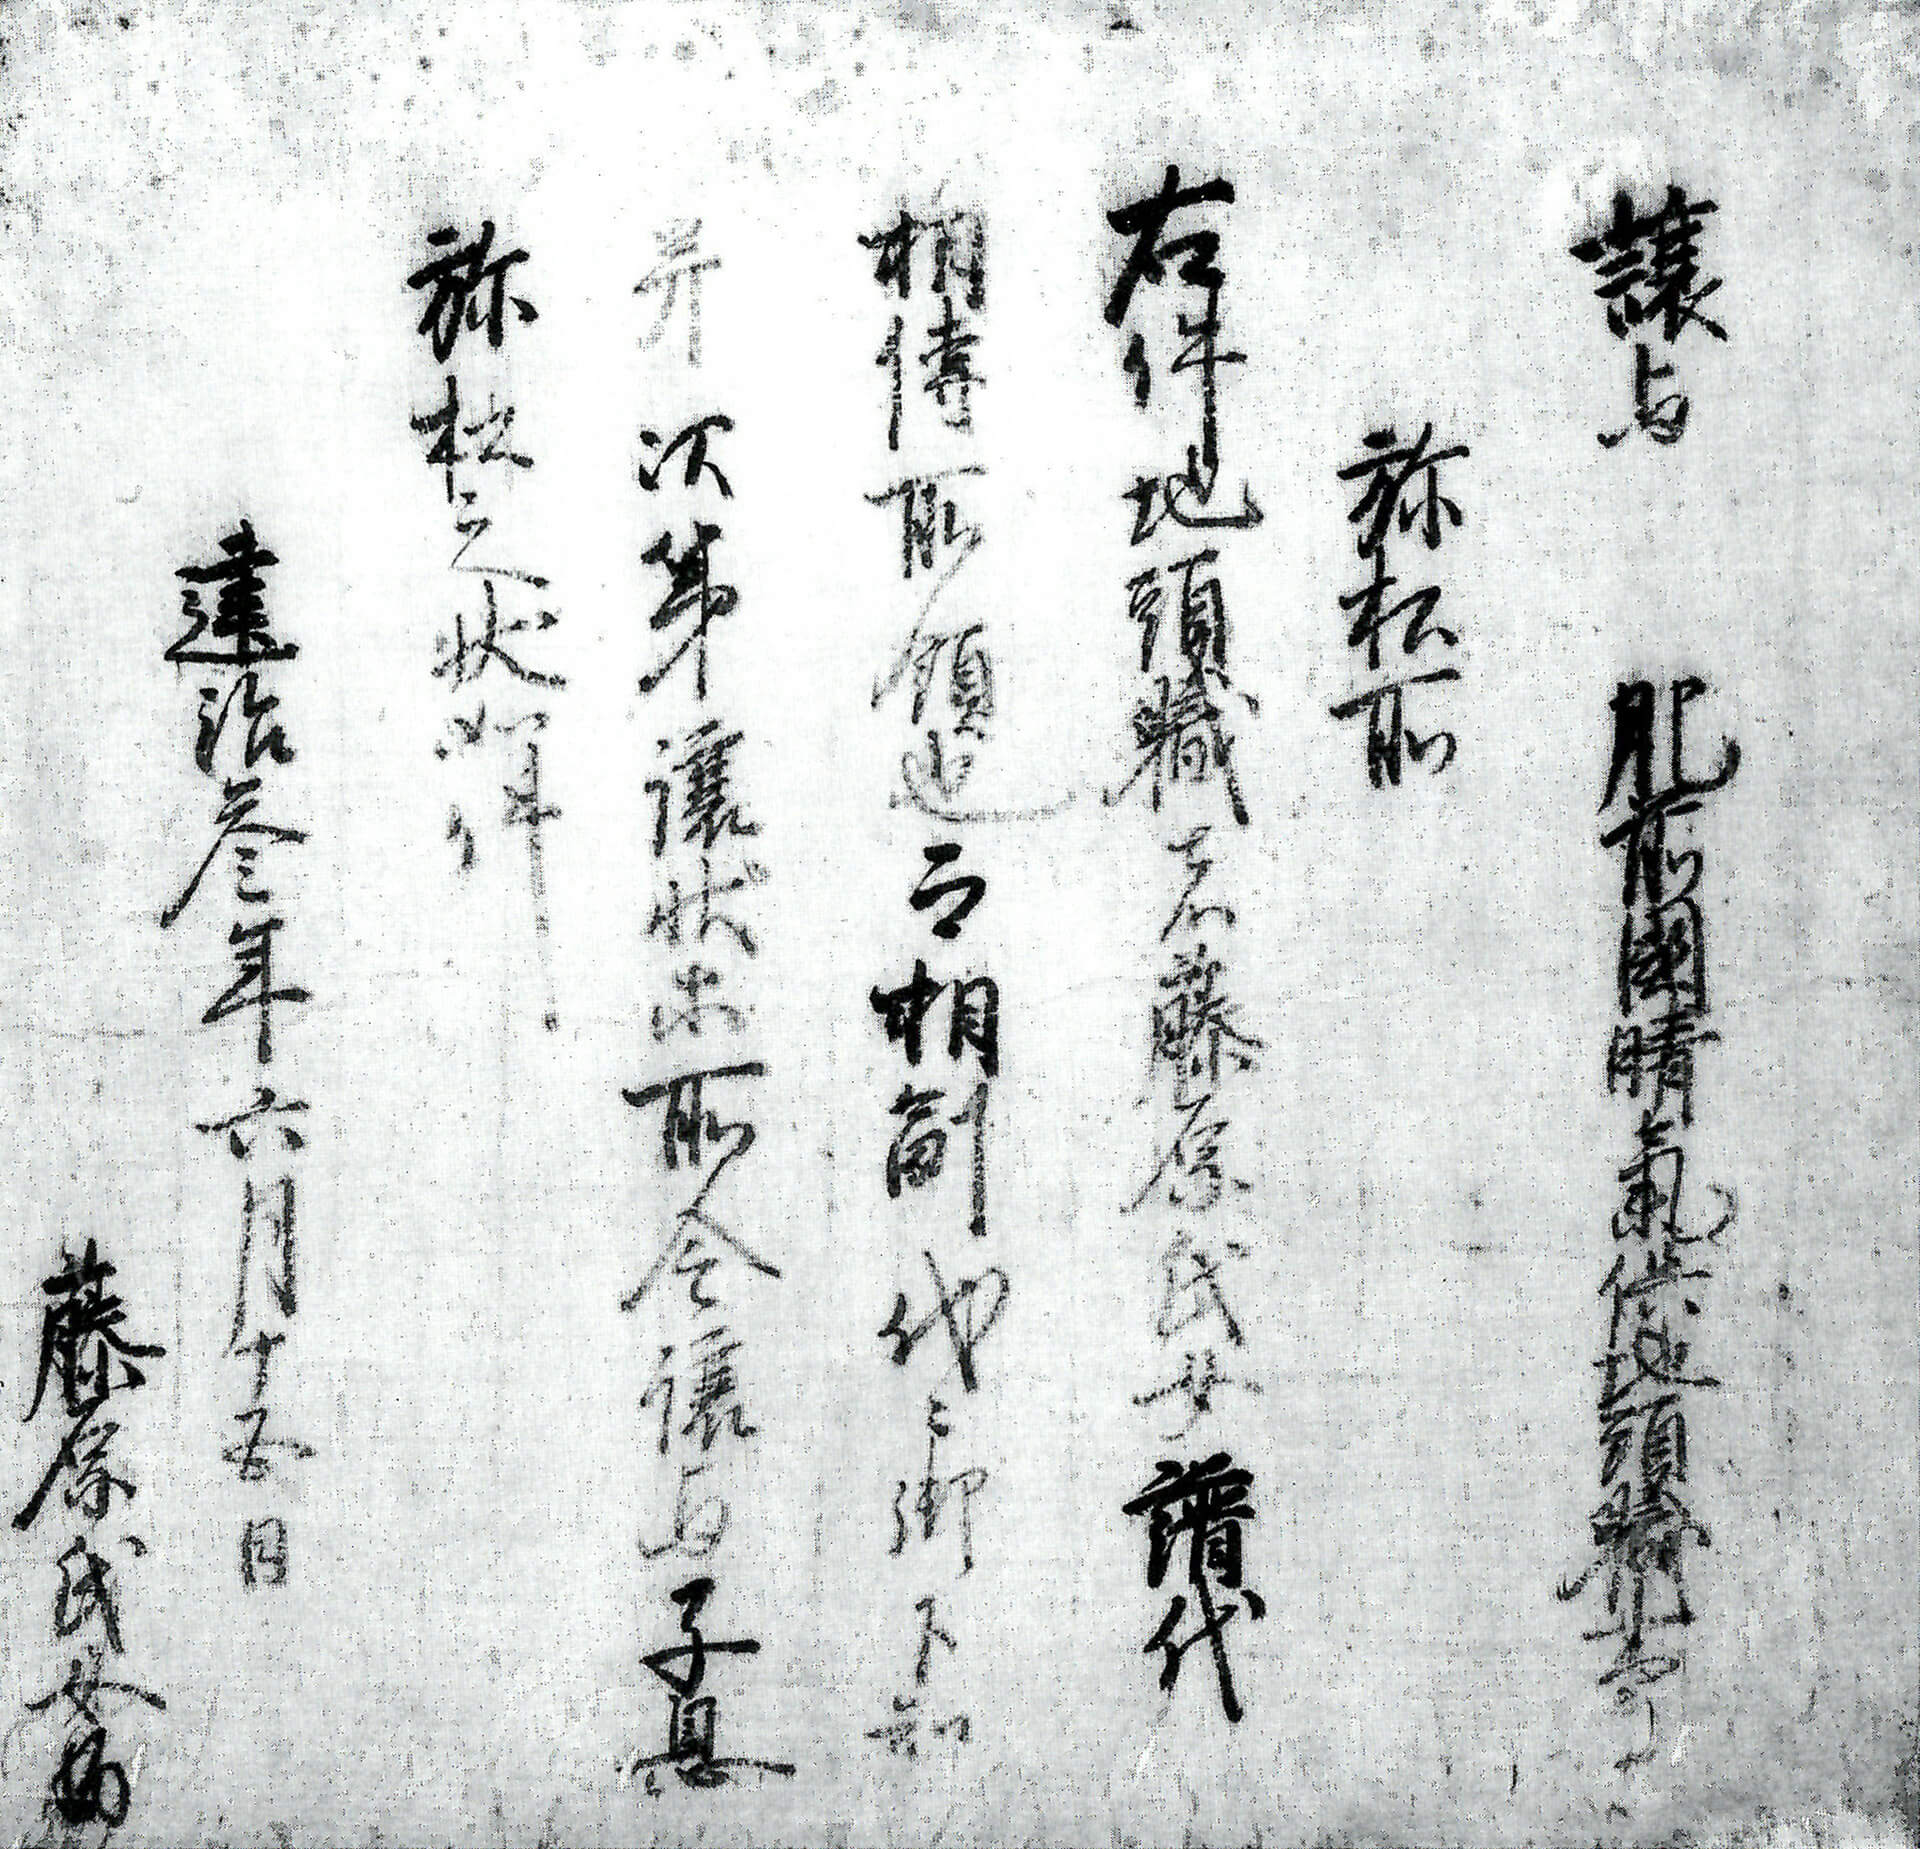 譲与　肥前國晴氣保地頭職事
弥松所
右件地頭職者藤原氏女譜代
相傳所領也而相副代々御下知
并次第譲状等所令譲与子息
弥松之状如件
建治参年六月十五日
藤原氏女